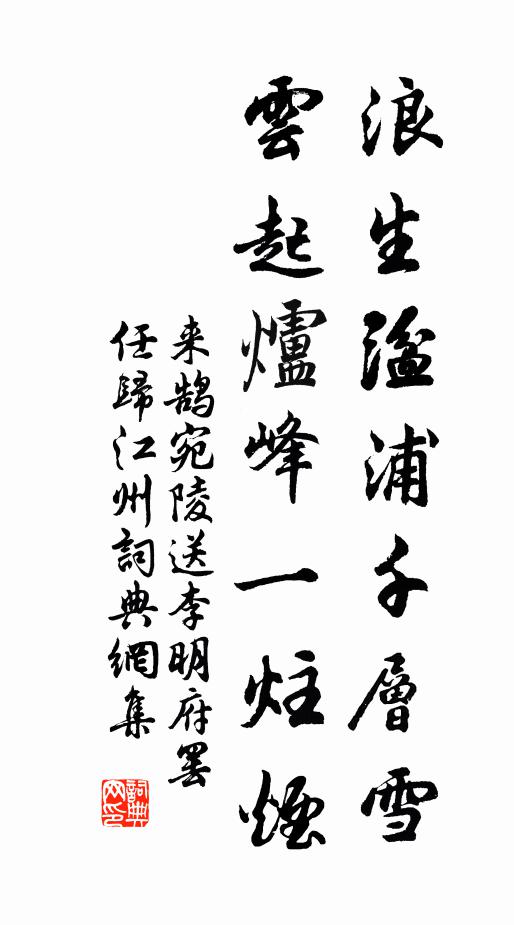 浪生湓浦千層雪
雲起爐峰一炷煙
来鵠宛陵送李明府罢
任歸江州詞典網集
詞典
网印